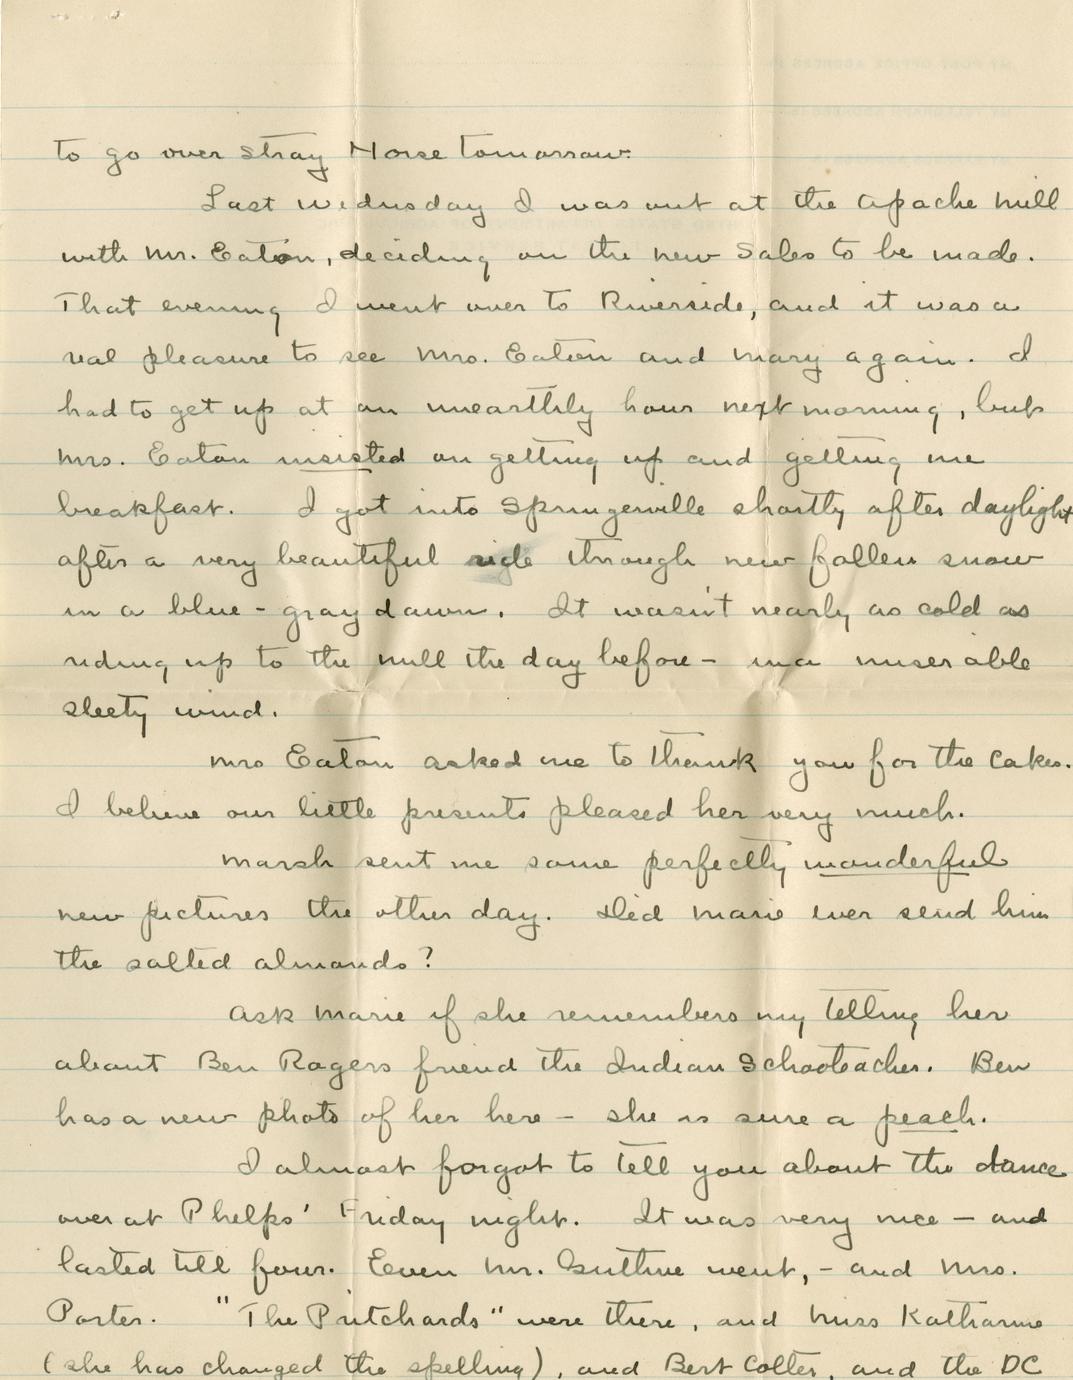 to go over Stray Horse tomorrow.
Last Wednesday I was out at the Apache Mill
with Mr. Eaton, deciding on the new Sales to be made.
That evening I went over to Riverside, and it was a
real pleasure to see Mrs. Eaton and Mary again. I
had to get up at an unearthly hour next morning, but
Mrs. Eaton insisted on getting up and getting me
breakfast. I got into Springerville shortly after daylight
after a very beautiful ride through new fallen snow
in a blue-gray dawn. It wasn't nearly as cold as
riding up to the mill the day before - in a miserable
sleety wind.
Mrs Eaton asked me to thank you for the cakes.
I believe our little presents pleased her very much.
Marsh sent me some perfectly wonderful
new pictures the other day. Did Marie ever send him
the salted almonds?
Ask Marie if she remembers my telling her
about Ben Rogers friend the Indian Schoolteacher. Ben
has a new photo of her here - she is sure a peach.
I almost forgot to tell you about the dance
over at Phelps' Friday night. It was very nice - and
lasted till four. Even Mr. Guthrie went, - and Mrs.
Porter. "The Pritchards" were there, and Miss Katharine
(she has changed the spelling), and Bert Colter, and the DC